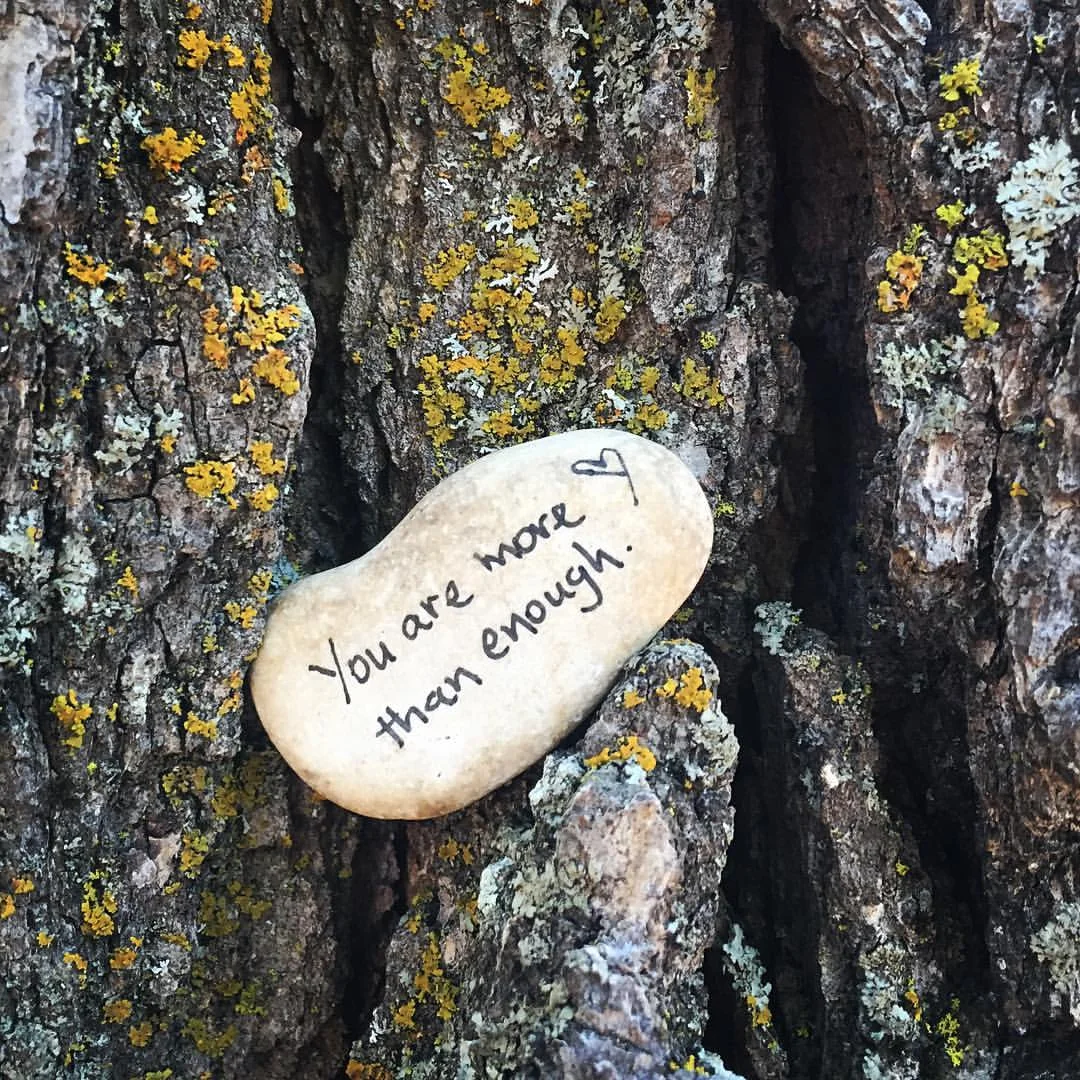 You are more
than enough.